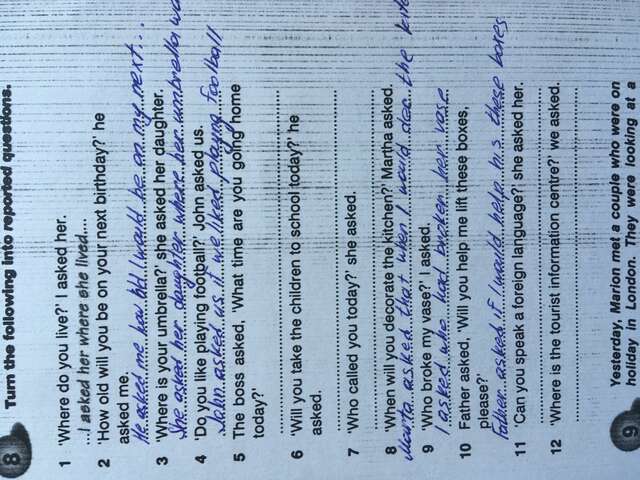 8 Turn the following into reported questions.
1 'Where do you live?' I asked her.
...I asked her where she lived....
2 'How old will you be on your next birthday?' he
asked me.
He asked me how old I would be on my next...
3 'Where is your umbrella?' she asked her daughter.
She asked her daughter where her umbrella wa
4 'Do you like playing football?' John asked us.
John asked us if we liked playing football
5 The boss asked, 'What time are you going home
today?'
6 'Will you take the children to school today?' he
asked.
7 'Who called you today?' she asked.
8 'When will you decorate the kitchen?' Martha asked.
Marta asked that when I would dec. the kit
9 'Who broke my vase?' I asked.
I asked who had broken her vase
10 Father asked, 'Will you help me lift these boxes,
please?'
Father asked if I would help these boxes
11 'Can you speak a foreign language?' she asked her.
12 'Where is the tourist information centre?' we asked.
9 Yesterday, Marion met a couple who were on
holiday in London. They were looking at a